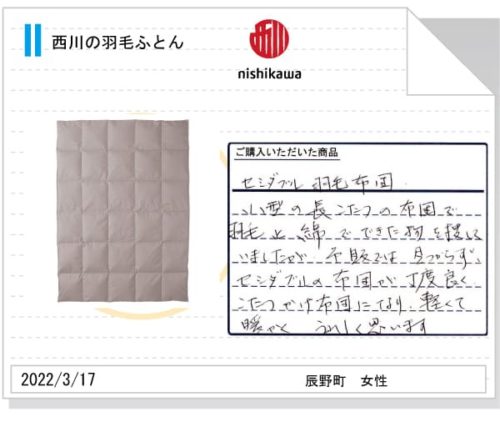 西川の羽毛ふとん
西川
nishikawa
ご購入いただいた商品
セミダブル 羽毛布団
小型の長こたつの布団で
羽毛と綿でできた物を探して
いましたが 市販では見つからず、
セミダブルの布団が丁度良く
こたつかけ布団になり、軽くて
暖かく うれしく思います
2022/3/17
辰野町 女性